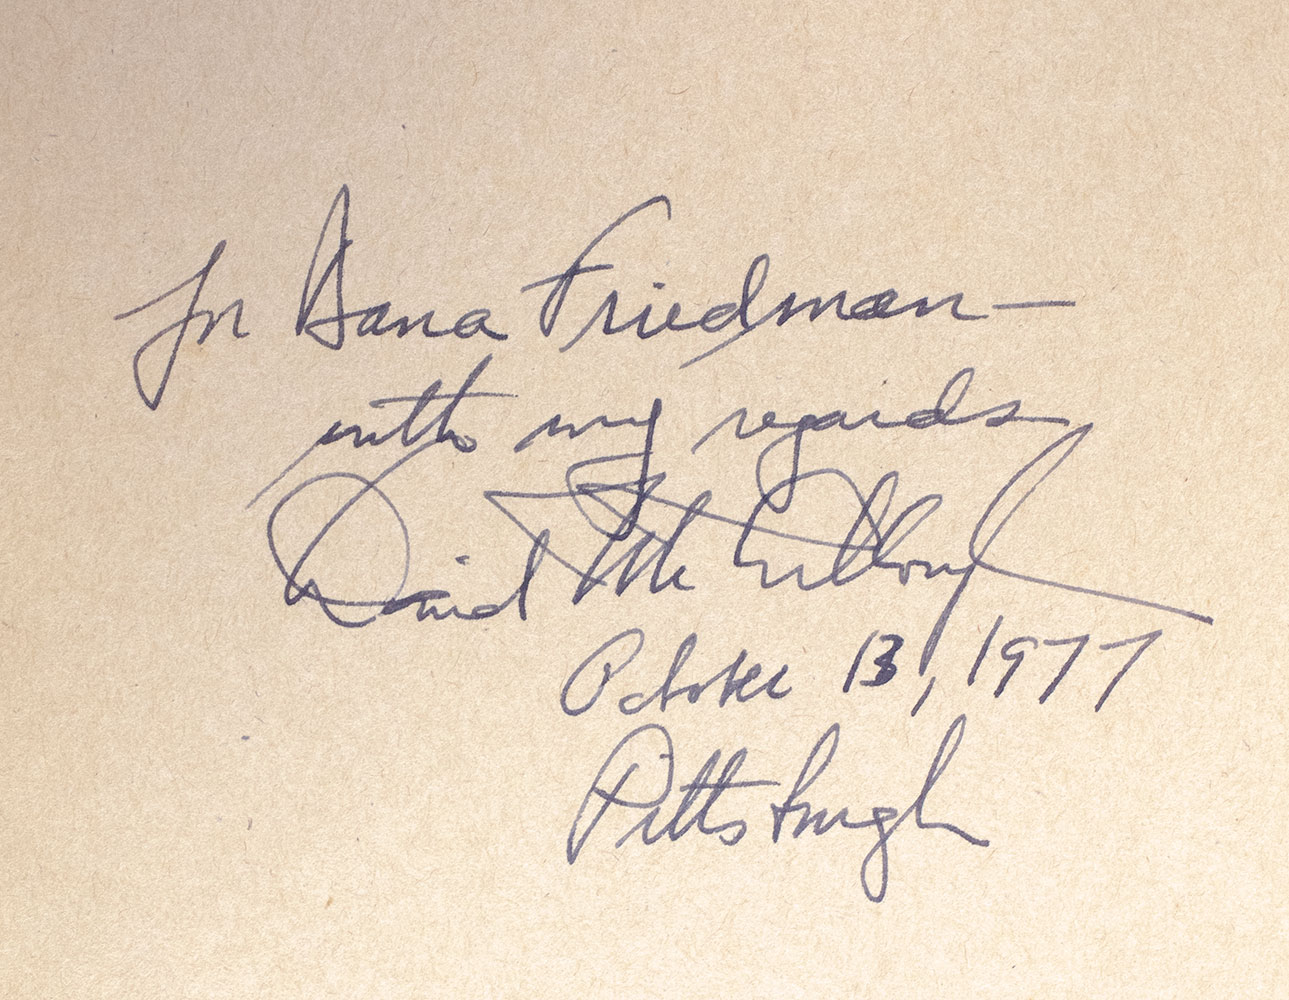 For Dana Friedman—
with my regards
David McCullough
October 13, 1977
Pittsburgh